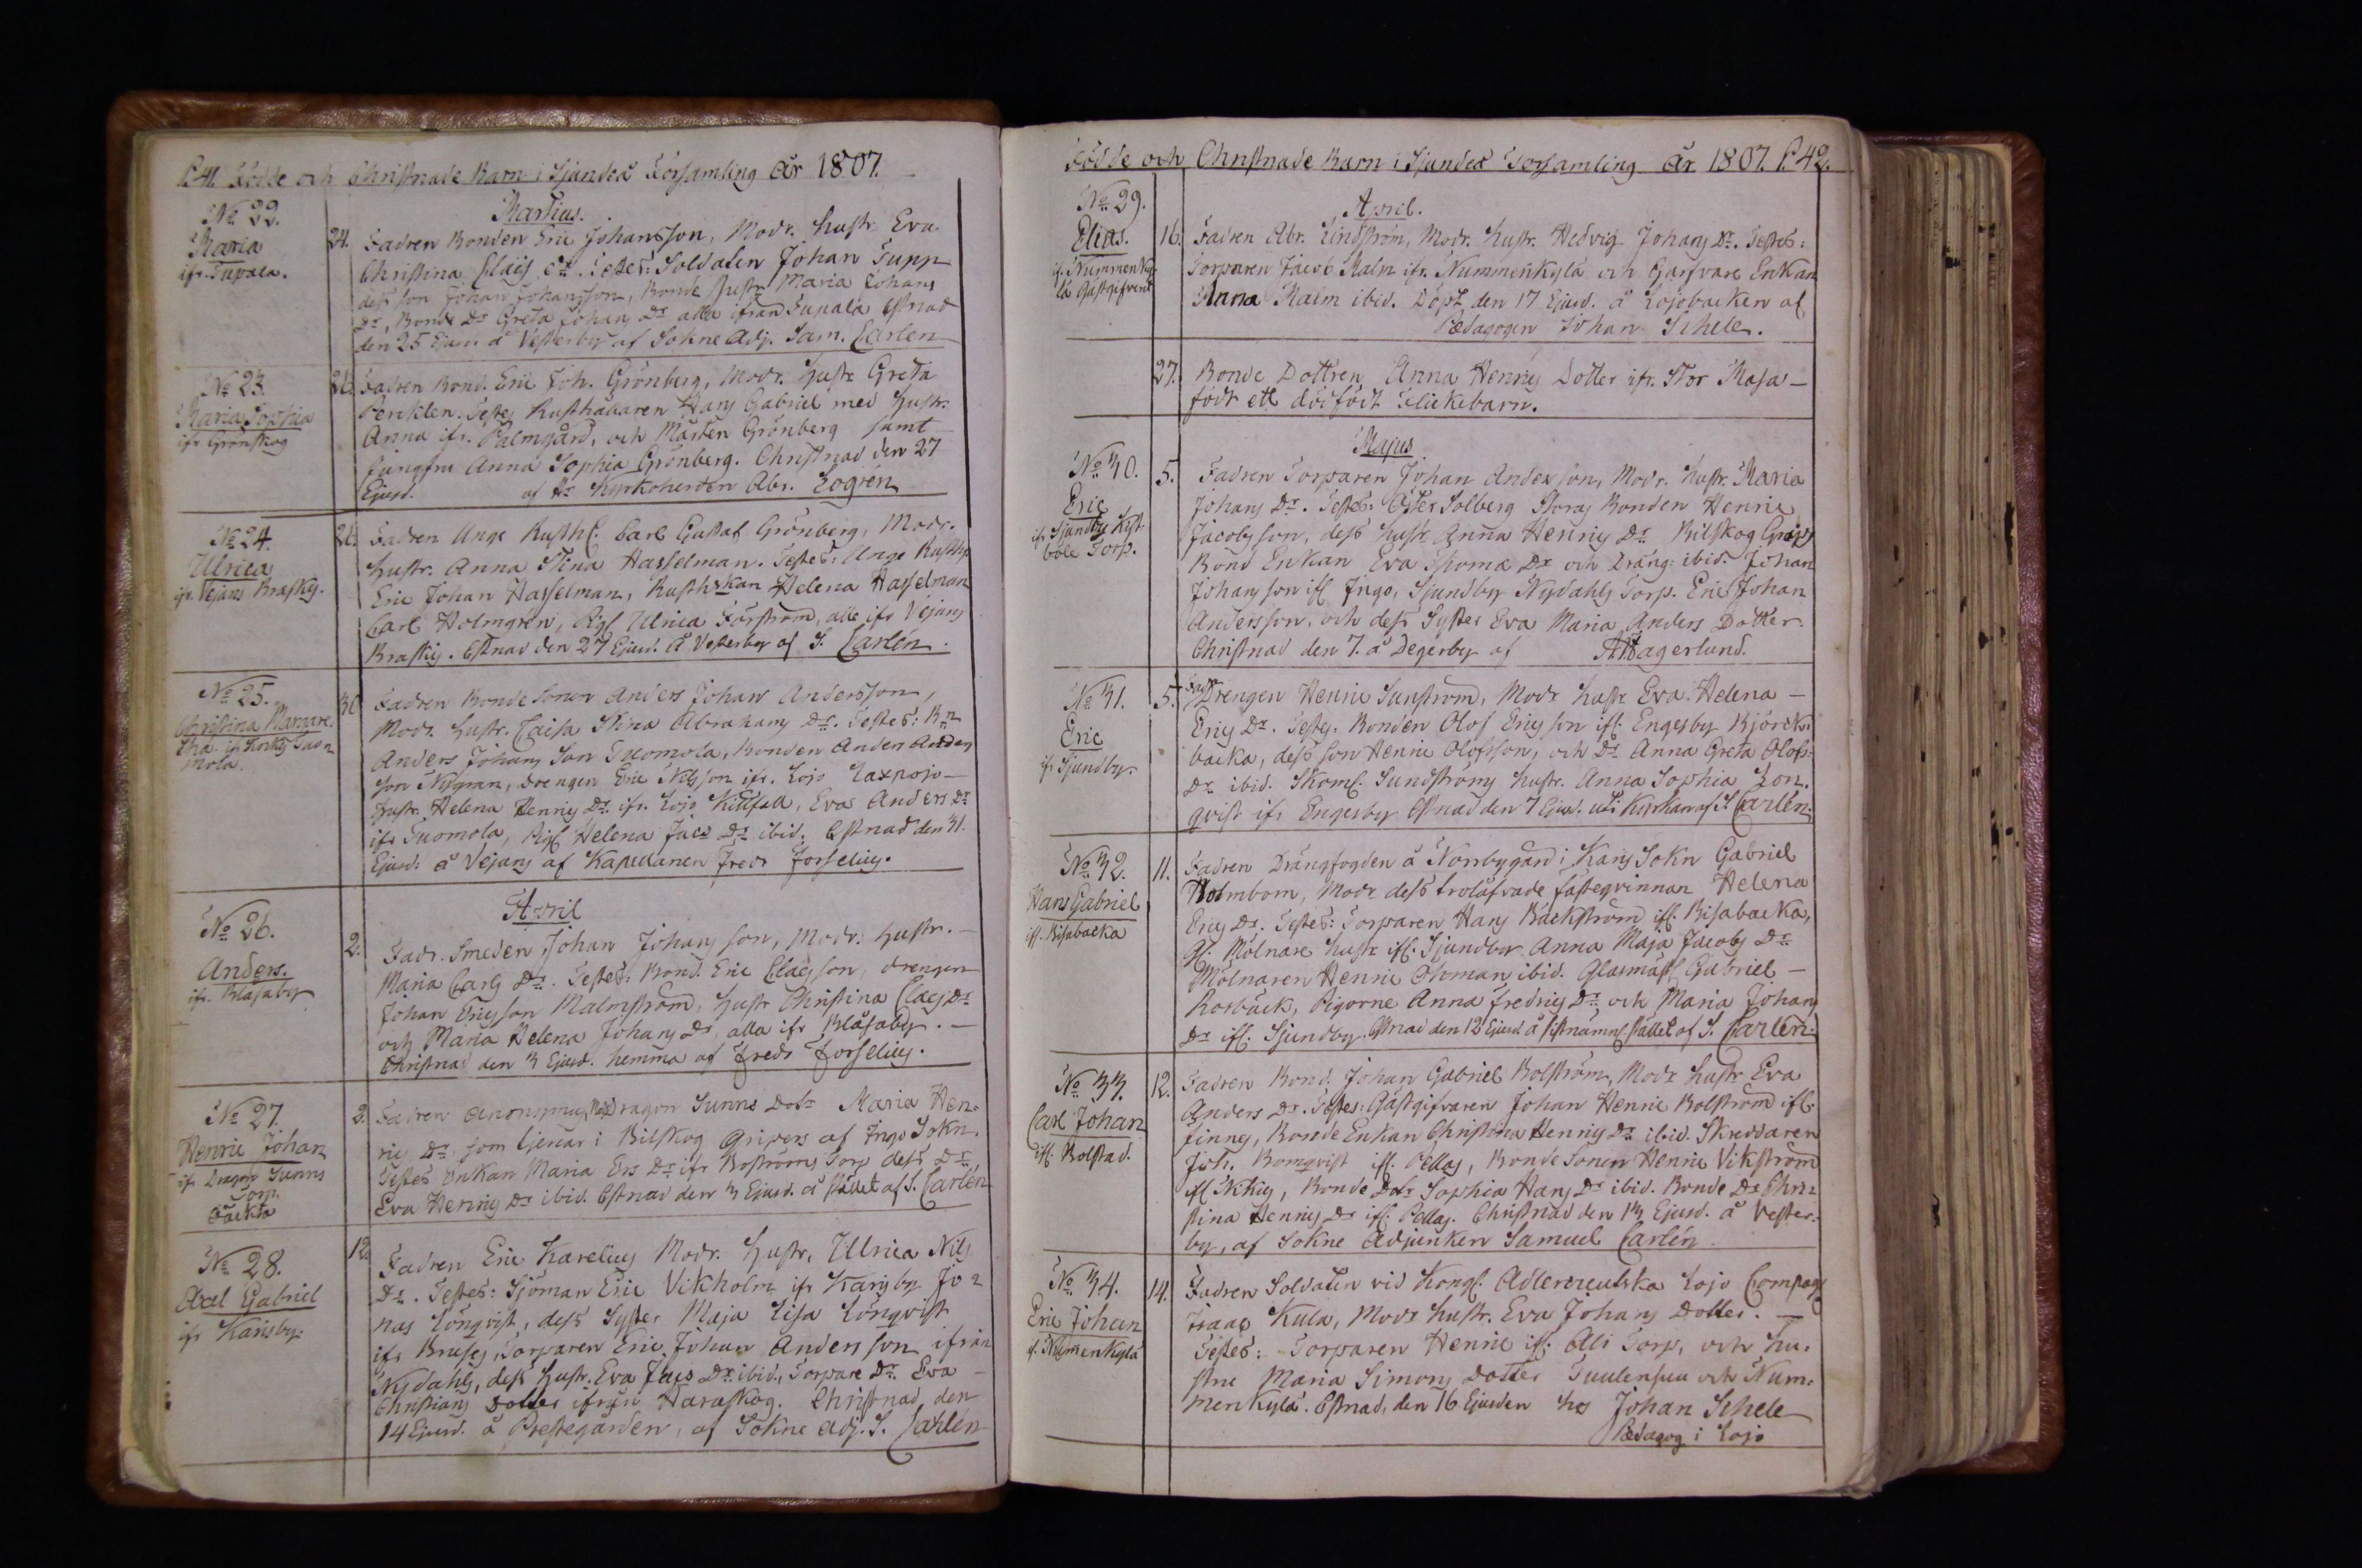 P. 41. Födde och Christnade Barn i Sjundeå Församling år 1807.
Martius.
No 22.
Maria
ifr. Tupala.
24. Fadren Bonden Eric Johansson, Modr. hustr. Eva
Christina Claës Dr. Testes: Soldaten Johan Tupp
dess son Johan Johansson, Bonde hustr Maria Johans
Dr, Bonde Dr Greta Johans Dr alla ifrån Tupala Cstnad
den 25 Ejusd. å Vesterby af Sokne Adj. Sam. Carlen
No 23.
Maria Sophia
ifr Grönskog
Fadren Bond. Eric Joh. Grönberg, Modr. hustr Greta
Testes Rusthållaren Hans Gabriel med hustr.
Anna ifr. Palmgård, och Mårten Grönberg samt
Jungfru Anna Sophia Grönberg. Christnad den 27
Ejusd. af Hr Kyrkoherden Abr. Logrén
No 24.
Ulrica
ifr. Vejans Braskis.
Fadren Unge Rusth. Carl Gustaf Grönberg, Modr.
hustr. Anna Stina Hasselman. Testes: Unge Rusth.
Eric Johan Hasselman, Rusthskan Helena Hasselman
Carl Holmgrén, Pig. Ulrica Forström, alle ifr Vejans
Braskis. Cstnad den 27 Ejusd. å Vesterby af S. Carlén.
No 25.
Christina Margare-
tha ifr Tuo-
mola.
30 Fadren Bonde Sonen Anders Johan Andersson,
Modr. hustr. Caisa Stina Abrahams Dr. Testes: Bn
Anders Johans Son Tuomola, Bonden Anders Anders
son Nysgran, Drengen Eric Nilsson ifr. Lojo Laxpojo
hustr. Helena Henrics Dr. ifr. Lojo Kittfall, Eva Anders Dr
ifr Tuomola, Pig. Helena Jacs Dr ibid. Cstnad den 31.
Ejusd. å Vejans af Kapellanen Fredr Forselius.
April
No 26.
Anders.
ifr. Blåsaby
2. Fadr. Smeden Johan Johans son, Modr. hustr.
Maria Carls Dr. Testes: Bond. Eric Claës son, drengen
Johan Ericsson Malmström, hustr Christina Claës Dr
och Maria Helena Johans Dr, alla ifr Blåsaby.
Christnad den 3 Ejusd. hemma af Fredr Forselius.
No 27.
Henric Johan
ifr Dragon Sunns
Torp.
Oäckta
3. Fadren anonymus, Modr Dragon Sunns Dotr Maria Hen-
rics Dr som tjenar i Bilskog Gripers af Ingo Sokn.
Testes Enkan Maria Ers Dr ifr Boströms Torp dess Dr
Eva Henrics Dr ibid. Cstnad den 3 Ejusd. å stället af S. Carlén
No 28.
Axel Gabriel
ifr Karisby.
12. Fadren Eric Karelius Modr. hustr. Ulrica Nils
Dr. Testes: Sjöman Eric Vikholm ifr Karisby Jo-
nas Lönqvist, dess Syster Maja Lisa Lönqvist
ifr Bruses, Torparen Eric Johan Andersson ifrån
Nydahls, dess hustr. Eva Jacs Dr ibid., Torpare Dr. Eva
Christians Dotter ifrån Haraskog. Christnad den
14 Ejusd. å Prestegården, af Sokne Adj. S. Carlén
Födde och Christnade Barn i Sjundeå Församling år 1807. P. 42.
No 29.
Elias.
if. Nummenky-
lä Gästgifveri
April.
16. Fadren Abr. Lindström, Modr. hustr. Hedvig Johans Dr. Testes:
Torparen Jacob Malm ifr. Nummenkylä och Garfvare Enkan
Anna Malm ibid. Döpt den 17 Ejusd. å Lojobacken af
Pædagogen Johan Schele.
27. Bonde Dottren Anna Henrics Dotter ifr. Stor Masa
födt ett dödfödt Flickebarn.
Majus.
No 30.
Eric
ifr Sjundby Kyst-
böle Torp.
5. Fadren Torparen Johan Andersson, Modr. hustr. Maria
Johans Dr. Testes: Öfver Solberg Storas Bonden Henric
Jacobs son, dess hustr Anna Henrics Dr. Bilskog Gripers
Bond Enkan Eva Thomæ Dr och Dräng: ibid. Johan
Johans son if. Ingo, Sjundby Nydahls Torp. Eric Johan
Andersson, och dess Syster Eva Maria Anders Dotter.
Christnad den 7. å Degerby af Hagerlund.
No 31.
Eric
ifr Sjundby.
5. Fadr Drengen Henric Sunström, Modr hustr Eva Helena
Erics Dr. Testes. Bonden Olof Ericsson if. Engesby Björck-
backa, dess son Henric Olofsson, och Dr Anna Greta Olofs
Dr ibid. Skom. Sundströms hustr. Anna Sophia Lön-
qvist ifr Engesby Cstnad den 7 Ejusd. uti Kyrkan af S. Carlén.
No 32.
Hans Gabriel
if. Bisabacka
11. Fadren Drängfogden å Norrbygård i Karis Sokn Gabriel
Holmbom, Modr dess trolåfvade fästeqvinnan Helena
Erics Dr. Testes: Torparen Hans Bäckström if. Bisabacka,
Gl. Molnare hustr if. Sjundby Anna Maja Jacobs Dr
Mölnaren Henric Öhman ibid. Glasmäst. Gabriel
Rosbäck, Pigorne Anna Fredrics Dr och Maria Johans
Dr if. Sjundby. Cstnad den 12 Ejusd. å sistnämnd stället af S. Carlén.
No 33.
Carl Johan
if. Bolstad.
12. Fadren Bond. Johan Gabriel Bolström, Modr hustr Eva
Anders Dr. Testes: Gästgifvaren Johan Henric Bolström if.
Finnes, Bonde Enkan Christina Henrics Dr ibid. Skreddaren
Joh. Bomqvist if. Pellas, Bonde Sonen Henric Vikström
if. , Bonde Dotr Sophia Hans Dr ibid. Bonde Dr Chri-
stina Henrics Dr if. Pellas. Christnad den 13 Ejusd. å Vester-
by, af Sokne Adjunken Samuel Carlén.
No 34.
Eric Johan
if. Nummenkylä
14. Fadren Soldaten vid Kongl. Adlercreutska Lojo Compag.
Isaac Kula, Modr hustr. Eva Johans Dotter.
Testes: Torparen Henric if. Alis Torp, och hu-
stru Maria Simons Dotter Tuulensuu och Num-
menkylä. Cstnad, den 16 Ejusden hos Johan Schele
Pædagog i Lojo